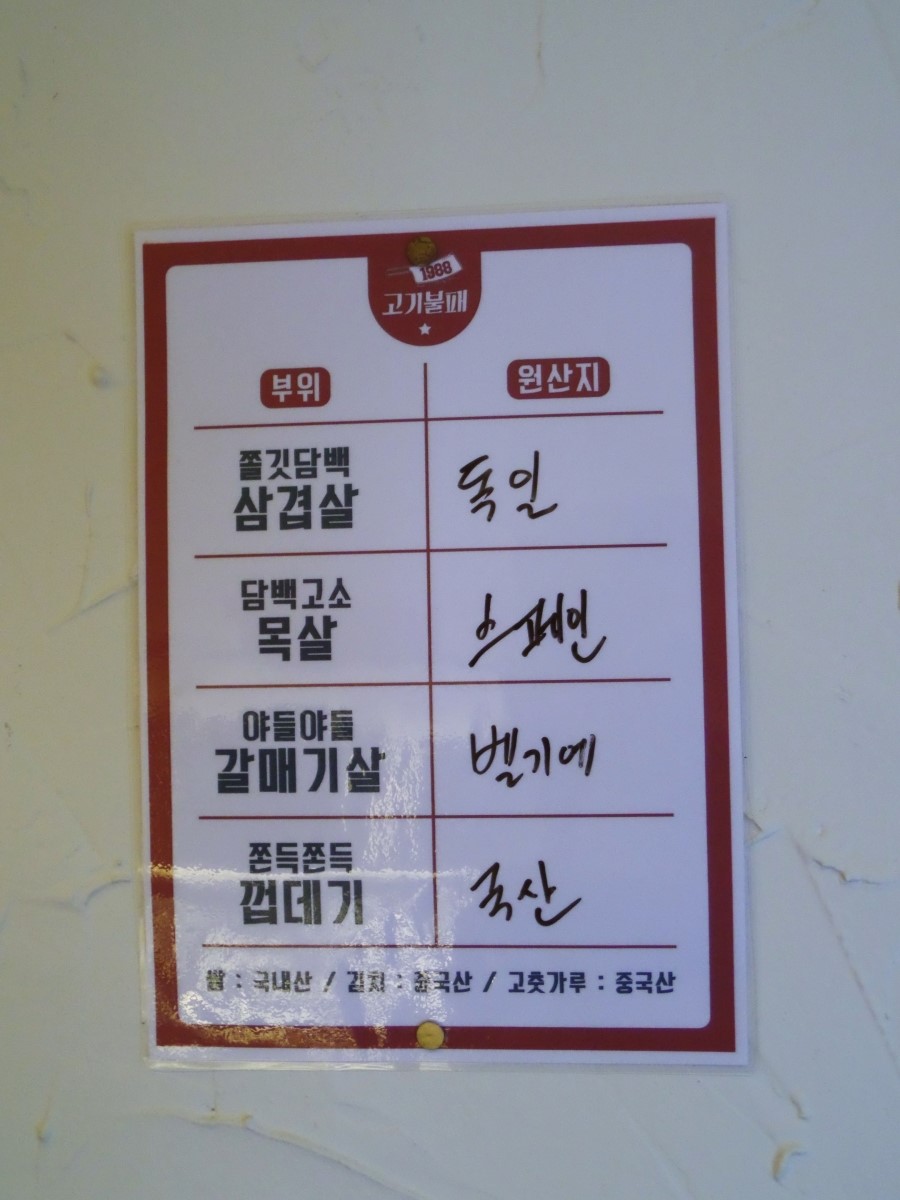 1988
고기불패
부위 원산지
쫄깃담백
삼겹살
독일
담백고소
목살
스페인
야들야들
갈매기살
벨기에
쫀득쫀득
껍데기
국산
쌀 : 국내산 / 김치 : 중국산 / 고춧가루 : 중국산